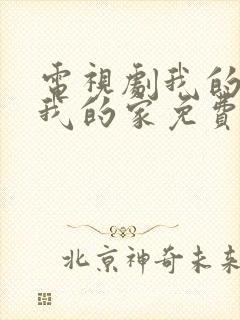 電視劇我的
我的家免費
北京神奇未来